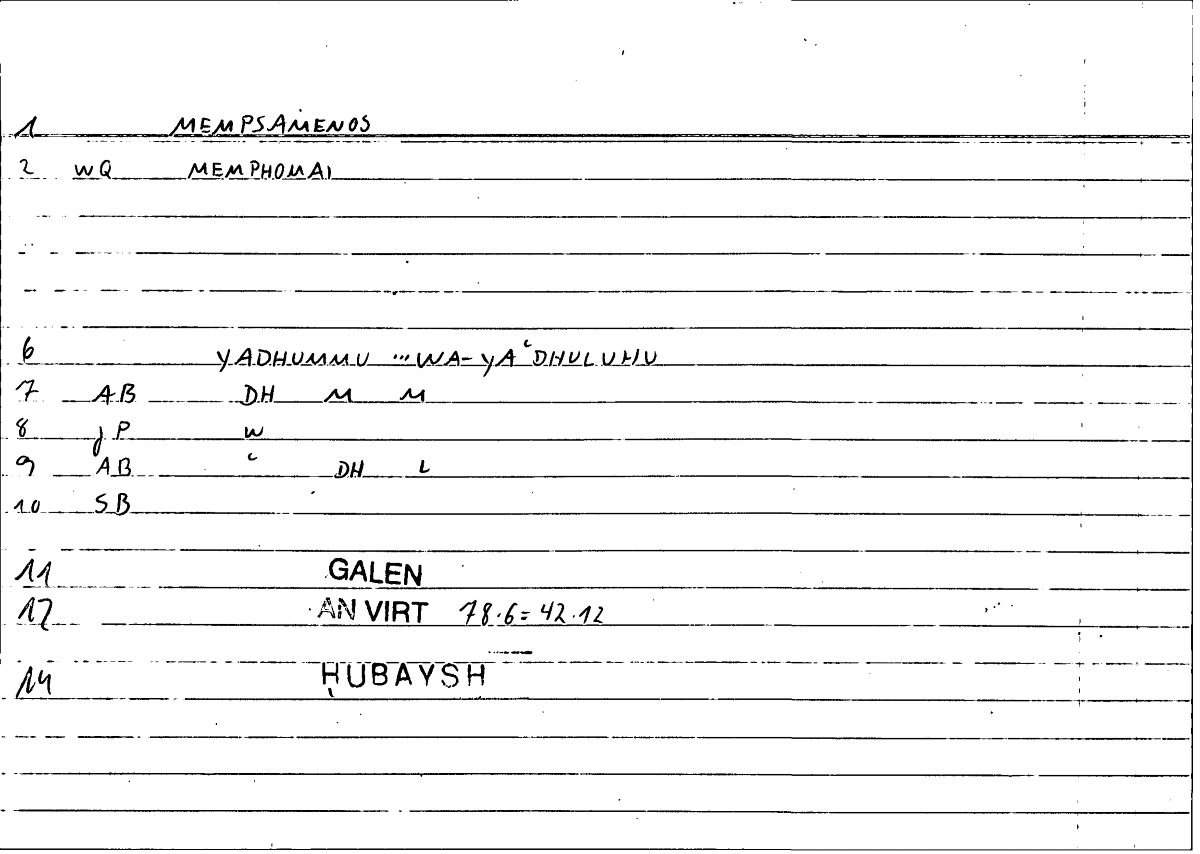 1 MEMPSAMENOS
2 WQ MEMPHOMAI
6 YADHUMMU ... WA-YAʿDHULUHU
7 AB DH M M
8 JP W
9 AB ʿ DH L
10 SB
11 GALEN
12 AN VIRT 78.6 = 42.12
14 ḤUBAYSH